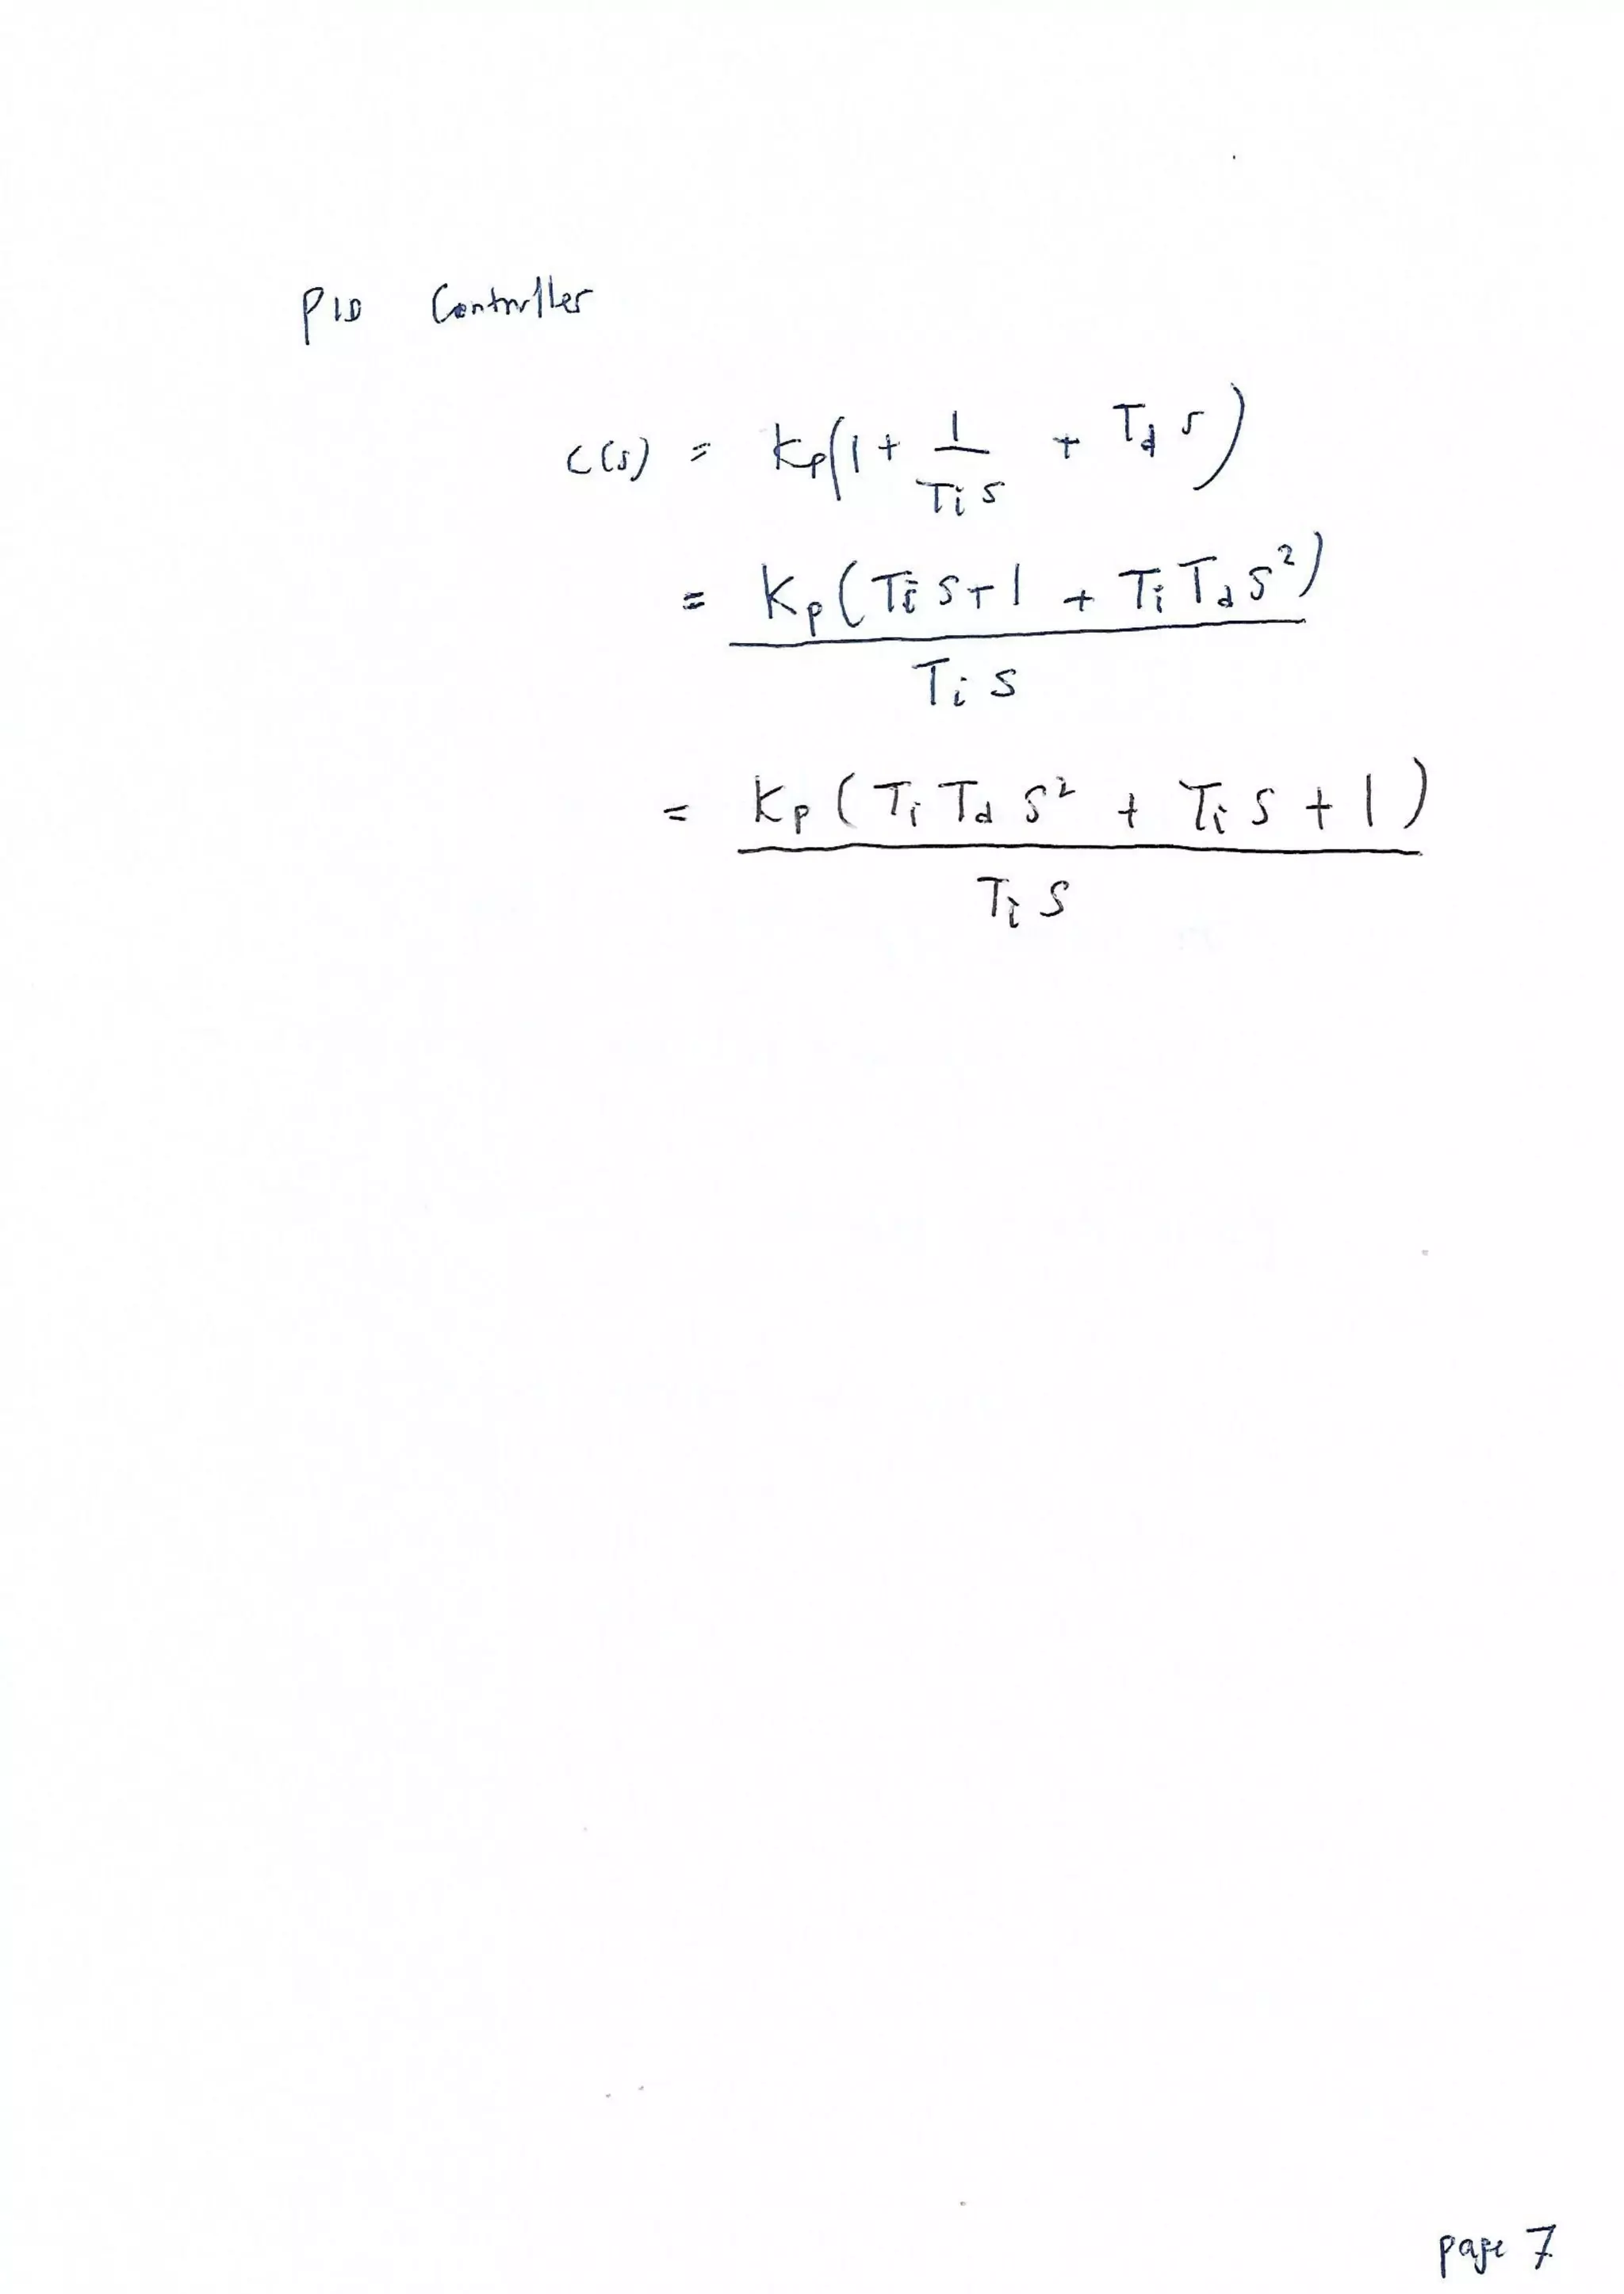 PID Controller
C(s) = Kp(1 + 1/(Ti s) + Td s)
= Kp(Ti s+1 + Ti Td s²)
Ti s
= Kp(Ti Td s² + Ti s + 1)
Ti s
page 7